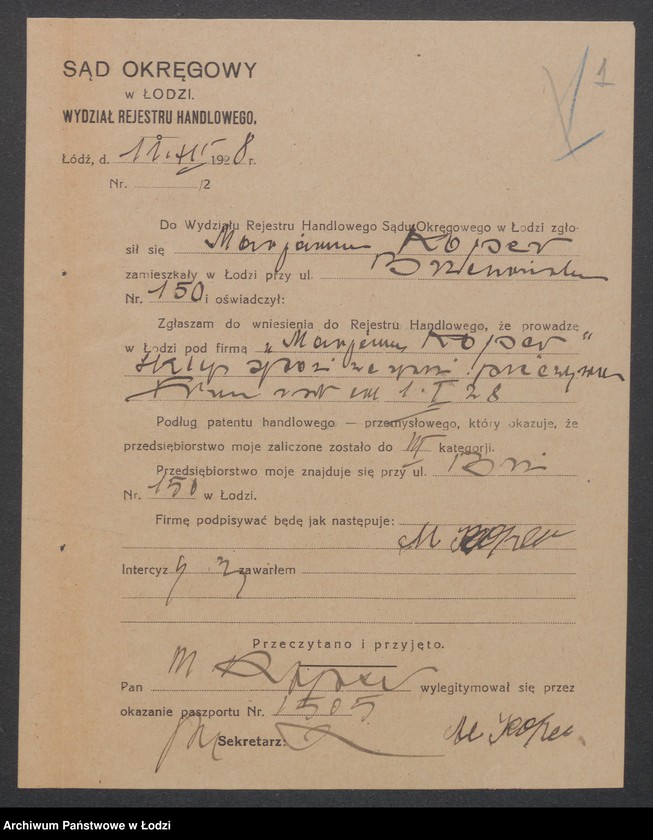 SĄD OKRĘGOWY
W ŁODZI.
WYDZIAŁ REJESTRU HANDLOWEGO.
1
Łódź, d. 11.XII 1928 r.
Nr. /2
Do Wydziału Rejestru Handlowego Sądu Okręgowego w Łodzi zgło-
sił się Marjanna Koper
zamieszkały w Łodzi przy ul. Brzezińska
Nr. 150 i oświadczył:
Zgłaszam do wniesienia do Rejestru Handlowego, że prowadzę
w Łodzi pod firmą „Marjanna Koper"
sklep
od 1.I 28
Podług patentu handlowego — przemysłowego, który okazuje, że
przedsiębiorstwo moje zaliczone zostało do III kategorji.
Przedsiębiorstwo moje znajduje się przy ul. Brz
Nr. 150 w Łodzi.
Firmę podpisywać będę jak następuje:
M Koper
Intercyzy zawarłem
Przeczytano i przyjęto.
Pan M Koper wylegitymował się przez
okazanie paszportu Nr. 1505
Sekretarz: M Koper
Archiwum Państwowe w Łodzi